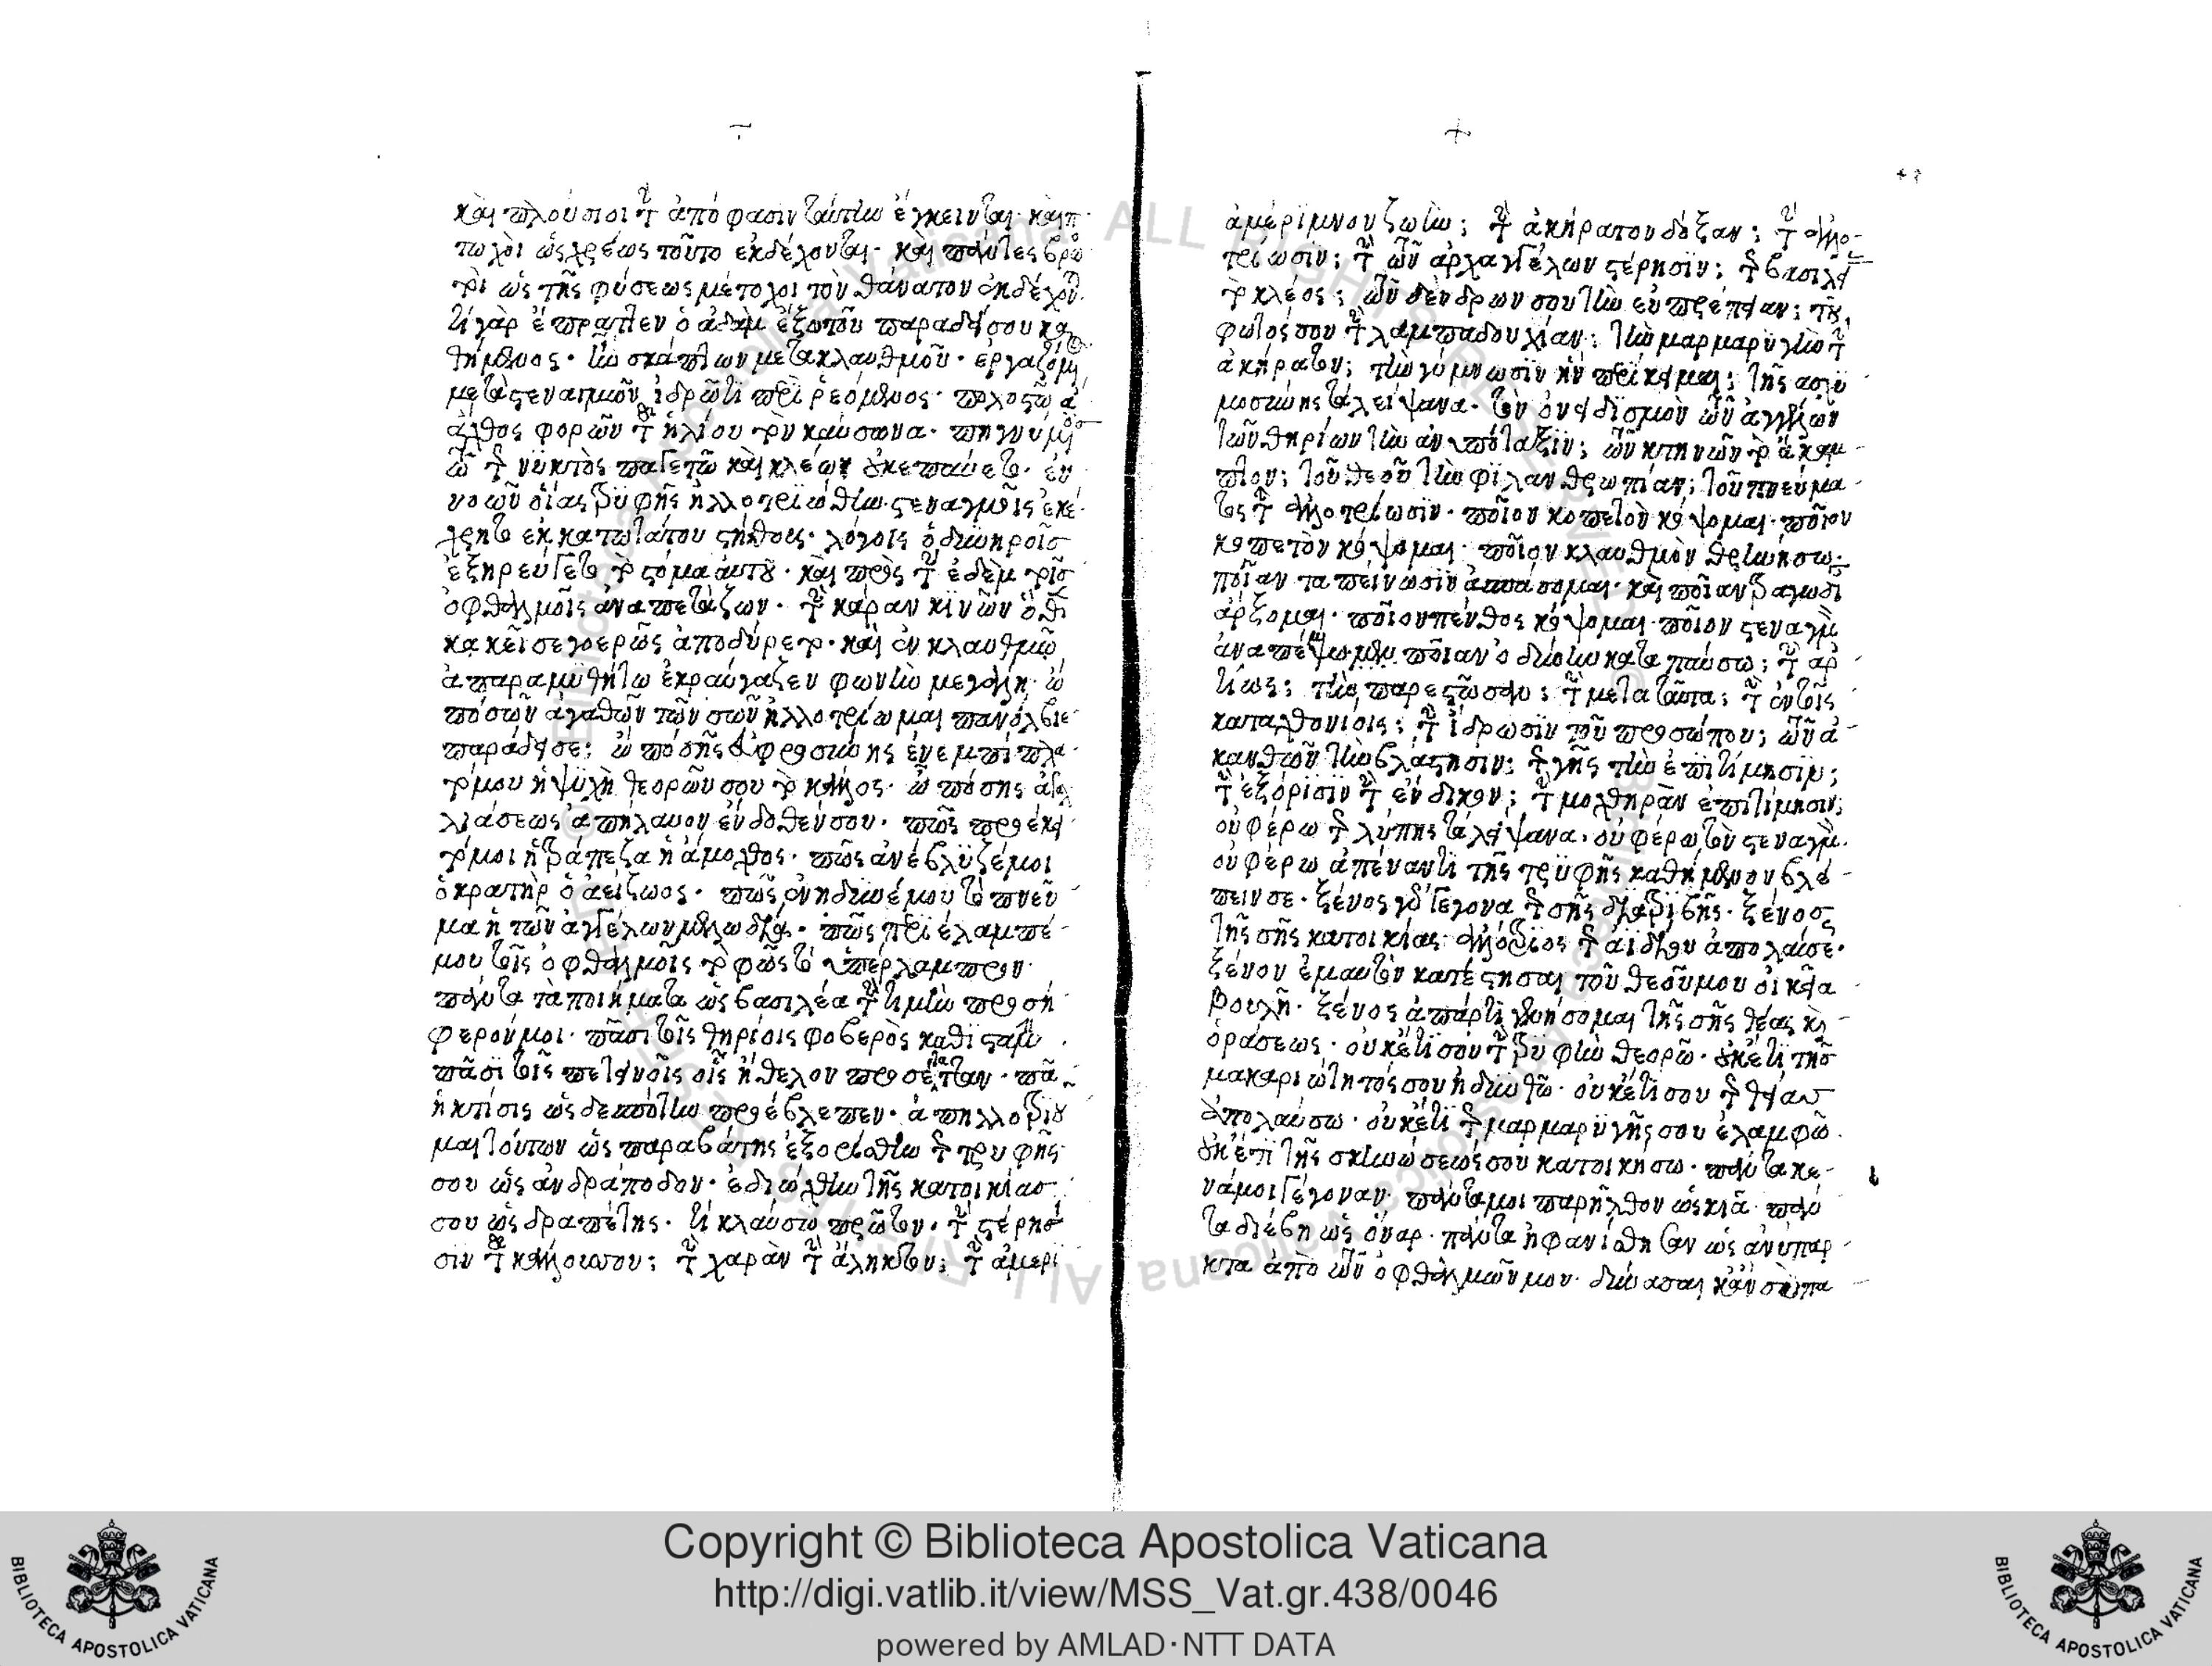 καὶ πλούσιοι τὴν ἀπόφασιν ταύτην ἔγκεινται· καὶ π
τωχοὶ ὡς χρέως τοῦτο ἐκδέχονται· καὶ πάντες βρο
τοὶ ὡς τῆς φύσεως μέτοχοι τὸν θάνατον ἐκδέχον
τί γὰρ ἔπραττεν ὁ ἀδὰμ ἔξω τοῦ παραδείσου κα
θήμενος· γῆν σκάπτων μετα κλαυθμοῦ· ἐργαζόμε
μετὰ στεναγμοῦ ἱδρῶτι περιρεόμενος·
ἄχθος φορῶν τὴν ἡλίου τὸν καύσωνα· πηγνύμε
τῆς νυκτὸς παγετῶ καὶ κλέων οὐκ ἐπαύετο· ἐν
νοῶν οἵας τρυφῆς ἠλλοτριώθην· στεναγμοῖς ἐκέ
χρητο ἐκ κατωτάτου στήθους· λόγοις ὀδυνηροῖς
ἐξηρεύγετο τὸ στόμα αὐτοῦ· καὶ πρὸς τὴν ἐδὲμ τοῖς
ὀφθαλμοῖς ἀναπετάζων· τὴν κάραν κινῶν
κακεῖσε γοερῶς ἀποδύρετο· καὶ ἐν κλαυθμῶ
ἀπαραμυθήτω ἐκραύγαζεν φωνὴν μεγάλη· ὢ
πόσων ἀγαθῶν τῶν σῶν ἠλλοτρίωμαι πανόλβιε
παράδεισε; ὢ πόσης εὐφροσύνης ἐνεμπίπλα
τό μου ἡ ψυχὴ θεορῶν σου τὸ κάλλος· ὢ πόσης ἀγα
λιάσεως ἀπήλαυον ἔνδοθέν σου· πῶς προέκει
τό μοι ἡ τράπεζα ἡ ἄμοχθος· πῶς ἀνέβλυζέ μοι
ὁ κρατὴρ ὁ ἀείζωος· πῶς ἐνήδυνέ μου τὸ πνεῦ
μα ἡ τῶν ἀγγέλων μελωδία· πῶς περιέλαμπέ
μου τοῖς ὀφθαλμοῖς τὸ φῶς τὸ ὑπέρλαμπρον·
πάντα τὰ ποιήματα ὡς βασιλέα τὴν τιμὴν προσή
φερον μοι· πᾶσι τοῖς θηρίοις φοβερὸς καθίσταμην
πᾶσι τοῖς πετεινοῖς οἷς ἤθελον προσέταττον· πᾶ
ἡ κτίσις ὡς δεσπότην προέβλεπεν· ἀπηλλοτρίω
μαι τούτων ὡς παραβάτης ἐξορίσθην τῆς τρυφῆς
σου ὡς ἀνδράποδον· ἐδιώχθην τῆς κατοικίας
σου ὡς δραπέτης· τί κλαύσω πρῶτον· τὴν στέρησ
σιν τοῦ κάλλους σου; τὴν χαρὰν τὴν ἄληκτον; τὴν ἀμερί
ἀμέριμνον ζωὴν; τὴν ἀκήρατον δόξαν; τὴν ἀλλο
τρίωσιν; τὴν τῶν ἀρχαγγέλων στέρησιν; τῆς βασιλεί
τὸ κλέος; τῶν δένδρων σου τὴν εὐπρέπειαν; τοῦ
φωτός σου τὴν λαμπαδουχίαν; τὴν μαρμαρυγὴν τὴν
ἀκήρατον; τὴν γύμνωσιν ἣν περίκειμαι; τῆς ἀσχη
μοσύνης τὰ λείψανα· τὸν ὀνειδισμὸν τῶν ἀγγέλων
τῶν θηρίων τὴν ἀνυπόταξιν; τῶν κτηνῶν τὸ ἄκαμ
πτον; τοῦ θεοῦ τὴν φιλανθρωπίαν; τοῦ πνεύμα
τος τὴν ἀλλοτρίωσιν· ποῖον κοπετὸν κόψομαι· ποῖον
κοπετὸν κόψομαι· ποῖον κλαυθμὸν θρηνήσω·
ποῖαν ταπείνωσιν ἀσπάσομαι· καὶ ποῖαν τραγωδί
ἄρξομαι· ποῖον πένθος κόψομαι· ποῖον στεναγμὸν
ἀναπέμψωμεν ποῖαν ὀδύνην καταπαύσω; τὴν ἀρ
τίως; τὴν παρεστῶσαν; τὴν μετα ταῦτα; τὴν ἐν τοῖς
καταχθονίοις; τὴν ἵδρωσιν τοῦ προσώπου; τῶν ἀ
κανθῶν τὴν βλάστησιν; τῆς γῆς τὴν ἐπιτίμησιν;
τὴν ἐξόρισιν τὴν ἔνδικον; τὴν μοχθηρὰν ἐπιτίμησιν;
οὐ φέρω τῆς λύπης τὰ λείψανα· οὐ φέρω τὸν στεναγμὸν·
οὐ φέρω ἀπέναντι τῆς τρυφῆς καθήμενον βλέ
πειν σε· ξένος γὰρ γέγονα τῆς σῆς διατριβῆς· ξένος
τῆς σῆς κατοικίας· ἀλλότριος τῆς ἀϊδίου ἀπολαύσε·
ξένον ἐμαυτὸν κατέστησα τοῦ θεοῦ μου οἰκεία
βουλῆ· ξένος ἀπάρτι γενήσομαι τῆς σῆς θέας καὶ
ὁράσεως· οὐκέτι σου τὴν τρυφὴν θεορῶ· οὐκέτι τῆς
μακαριότητός σου ἡδυνθῶ· οὐκέτι σου τῆς θέας
ἀπολαύσω· οὐκέτι τῆς μαρμαρυγῆς σου ἐλαμφῶ·
οὐκέτι τῆς σκηνώσεώς σου κατοικήσω· πάντα κε
νά μοι γέγοναν· πάντα μοι παρῆλθον ὡς σκιὰ· πάν
τα διέβη ὡς ὄναρ· πάντα ἠφανίσθησαν ὡς ἀνύπαρ
κτα ἀπὸ τῶν ὀφθαλμῶν μου· δύνασαι κἂν σὺ πα
Copyright © Biblioteca Apostolica Vaticana
http://digi.vatlib.it/view/MSS_Vat.gr.438/0046
powered by AMLAD·NTT DATA
BIBLIOTECA APOSTOLICA VATICANA
BIBLIOTECA APOSTOLICA VATICANA